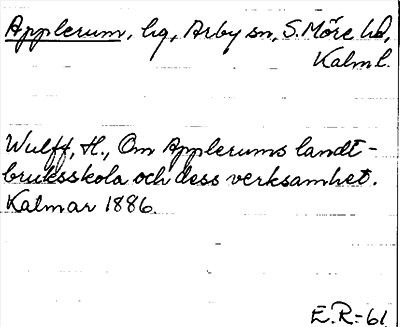 Applerum, hg, Arby sn, S. Möre hd,
Kalm l.
Wulff, H., Om Applerums landt-
bruksskola och dess verksamhet.
Kalmar 1886.
E.R-61